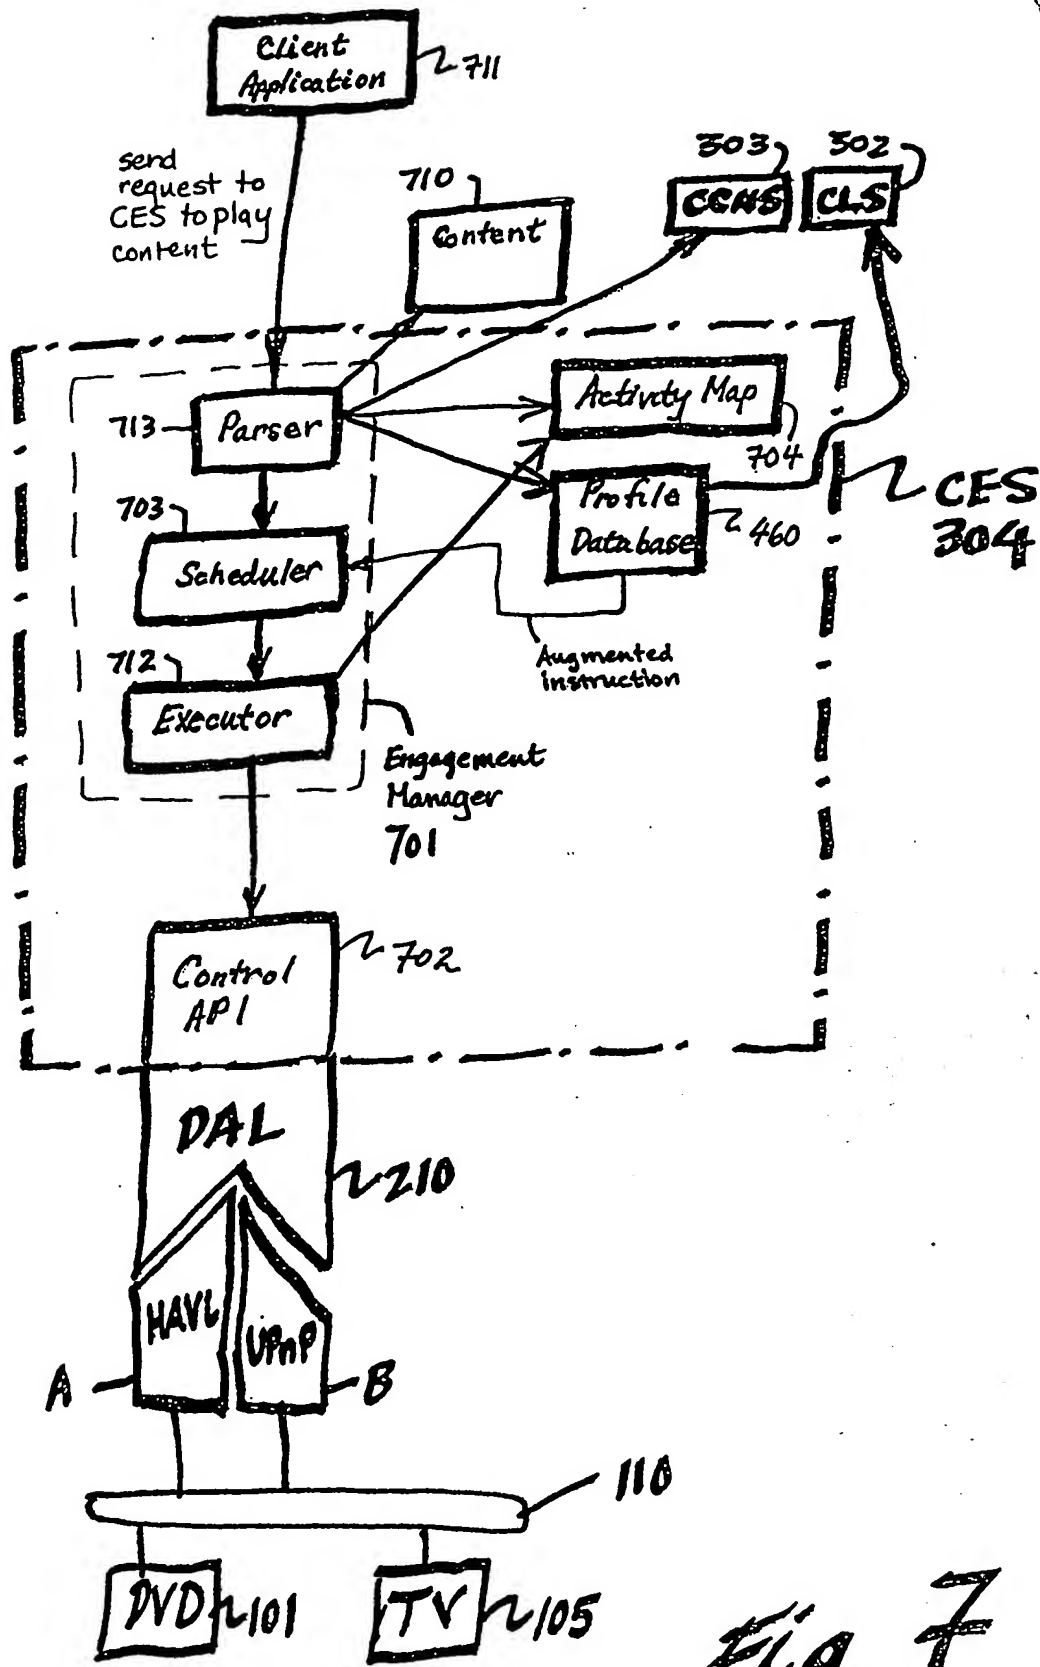 Client
Application
711
send
request to
CES to play
content
710
Content
303
302
CCMS
CLS
Parser
713
Activity Map
704
Profile
Database
460
CES
304
703
Scheduler
Augmented
instruction
712
Executor
Engagement
Manager
701
Control
API
702
DAL
210
HAVi
UPnP
A
B
110
DVD
101
TV
105
Fig 7